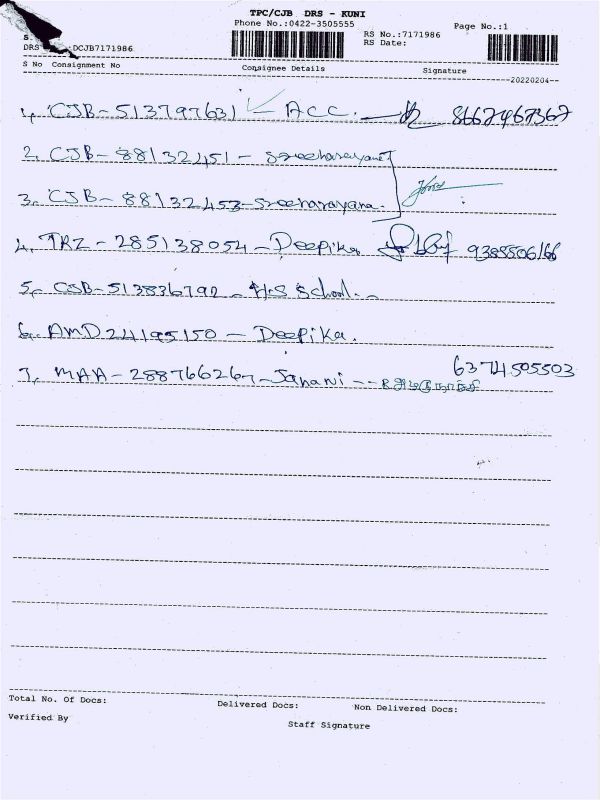 TPC/CJB DRS - KUNI
Phone No.:0422-3505555
Page No.:1
RS No.:7171986
RS Date:
S.
DRS DCJB7171986
S No Consignment No Consignee Details Signature
--20220204--
1, CJB-513797631 - ACC. 8667467367
2, CJB-88132451 - Sreenarayana
3, CJB-88132453-Sreenarayana.
4, TRZ-285138054-Deepika 9385506166
5, CJB-513836792 - H/S School.
6, AMD24195150 - Deepika.
7, MAA-288766267-Janani -- 6374505503
Total No. Of Docs: Delivered Docs: Non Delivered Docs:
Verified By
Staff Signature